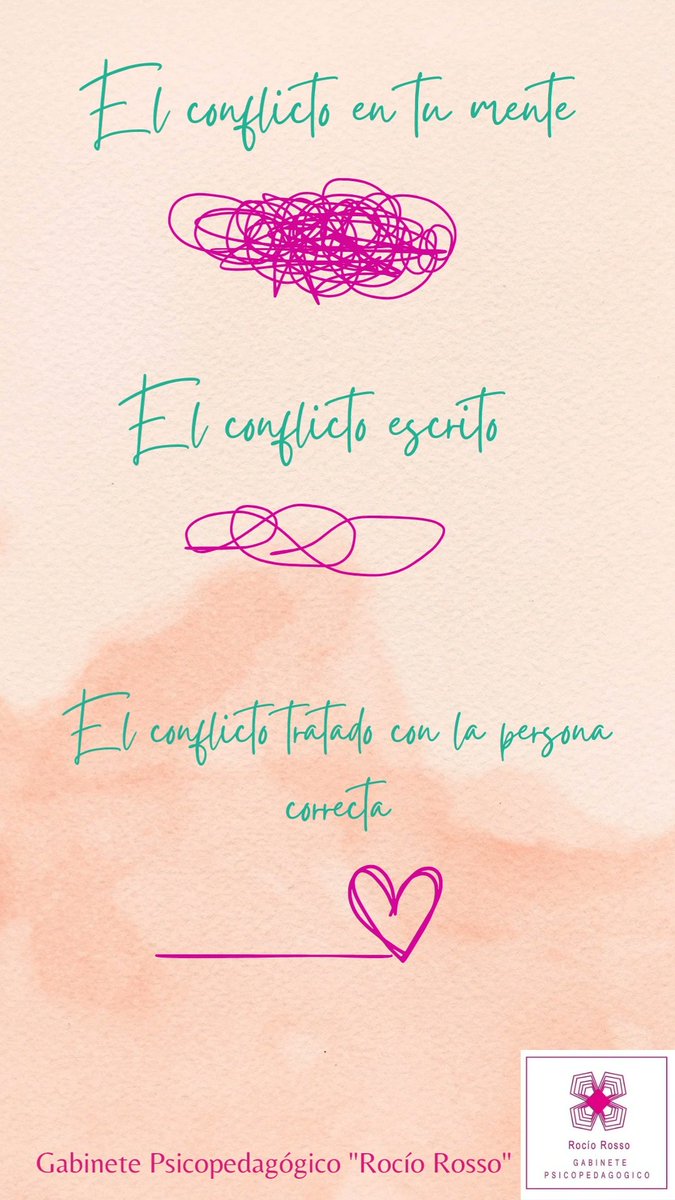 El conflicto en tu mente
El conflicto escrito
El conflicto tratado con la persona
correcta
Gabinete Psicopedagógico "Rocío Rosso"
Rocío Rosso
GABINETE
PSICOPEDAGOGICO